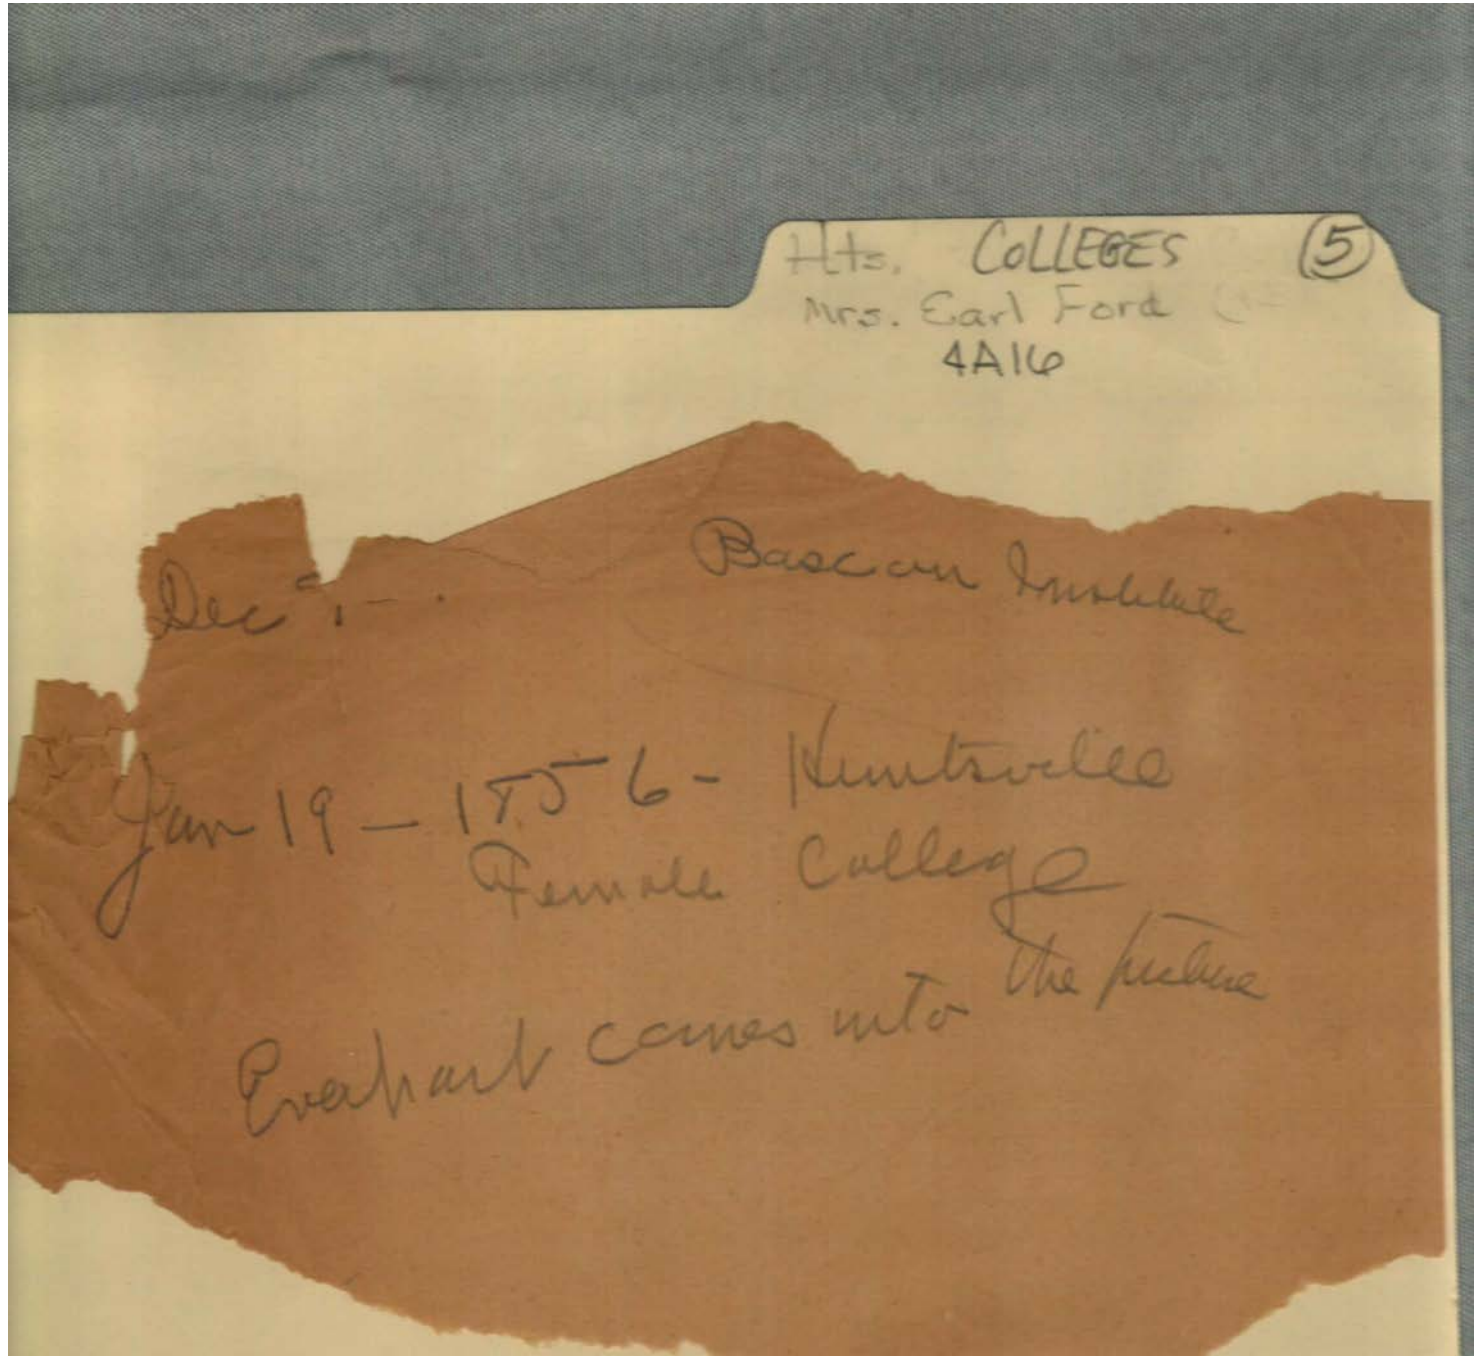 Hts. COLLEGES 5
Mrs. Earl Ford
4A16
Dec
Bascom Institute
Jan 19 - 1856 - Huntsville
Female College
Evahart comes into the picture